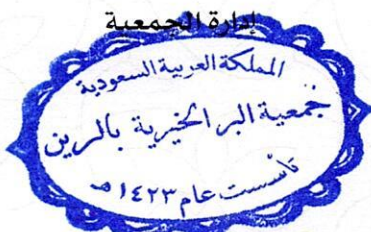 إدارة الجمعية
المملكة العربية السعودية
جمعية البر الخيرية بالرين
تأسست عام ١٤٢٣هـ